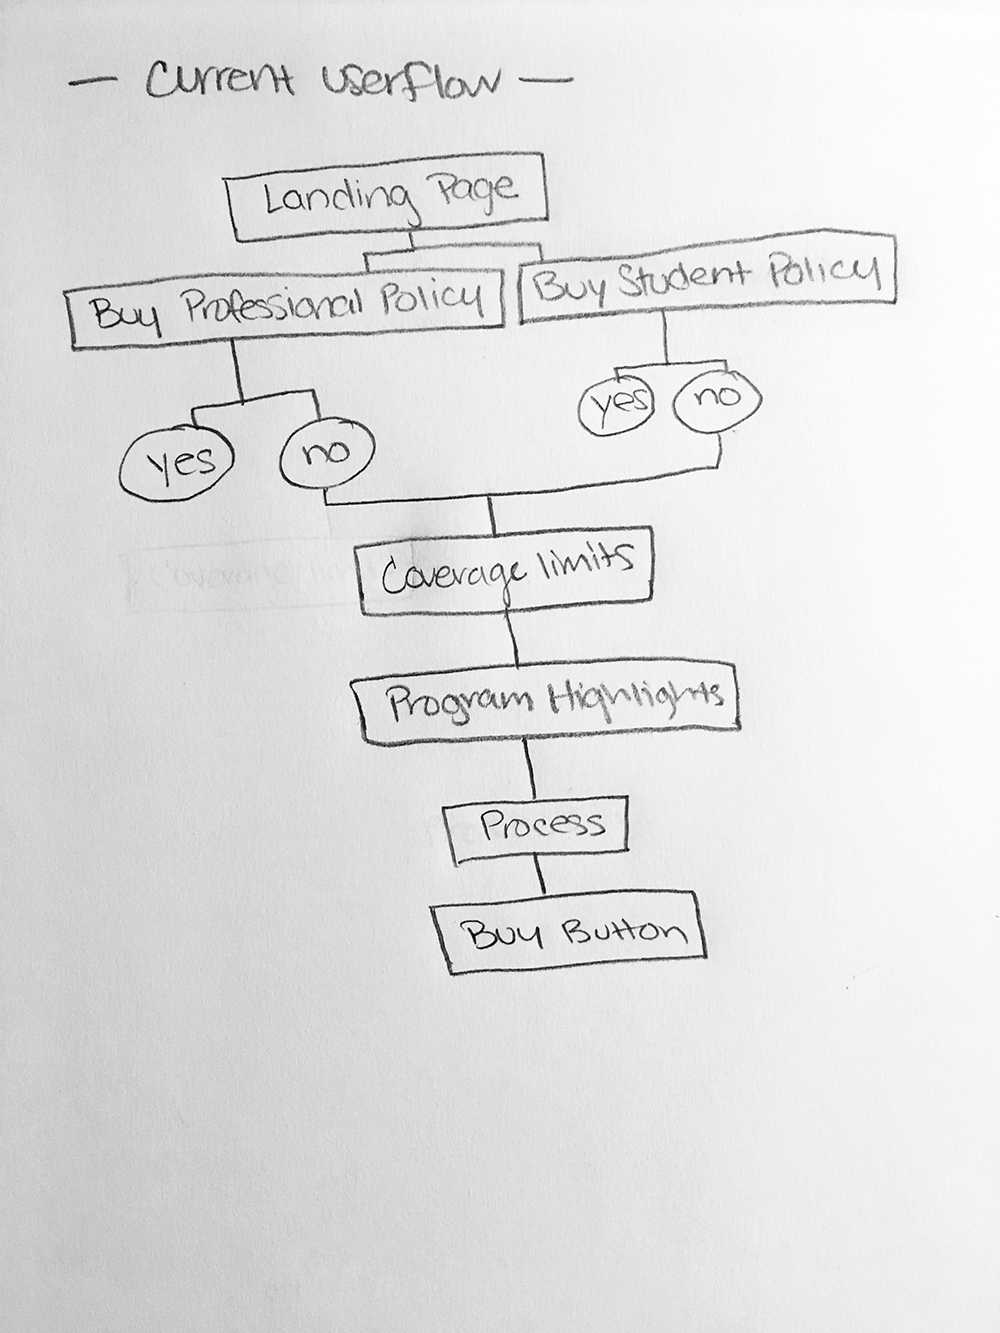 — Current userflow —
Landing Page
Buy Professional Policy
Buy Student Policy
yes
no
yes
no
Coverage limits
Program Highlights
Process
Buy Button